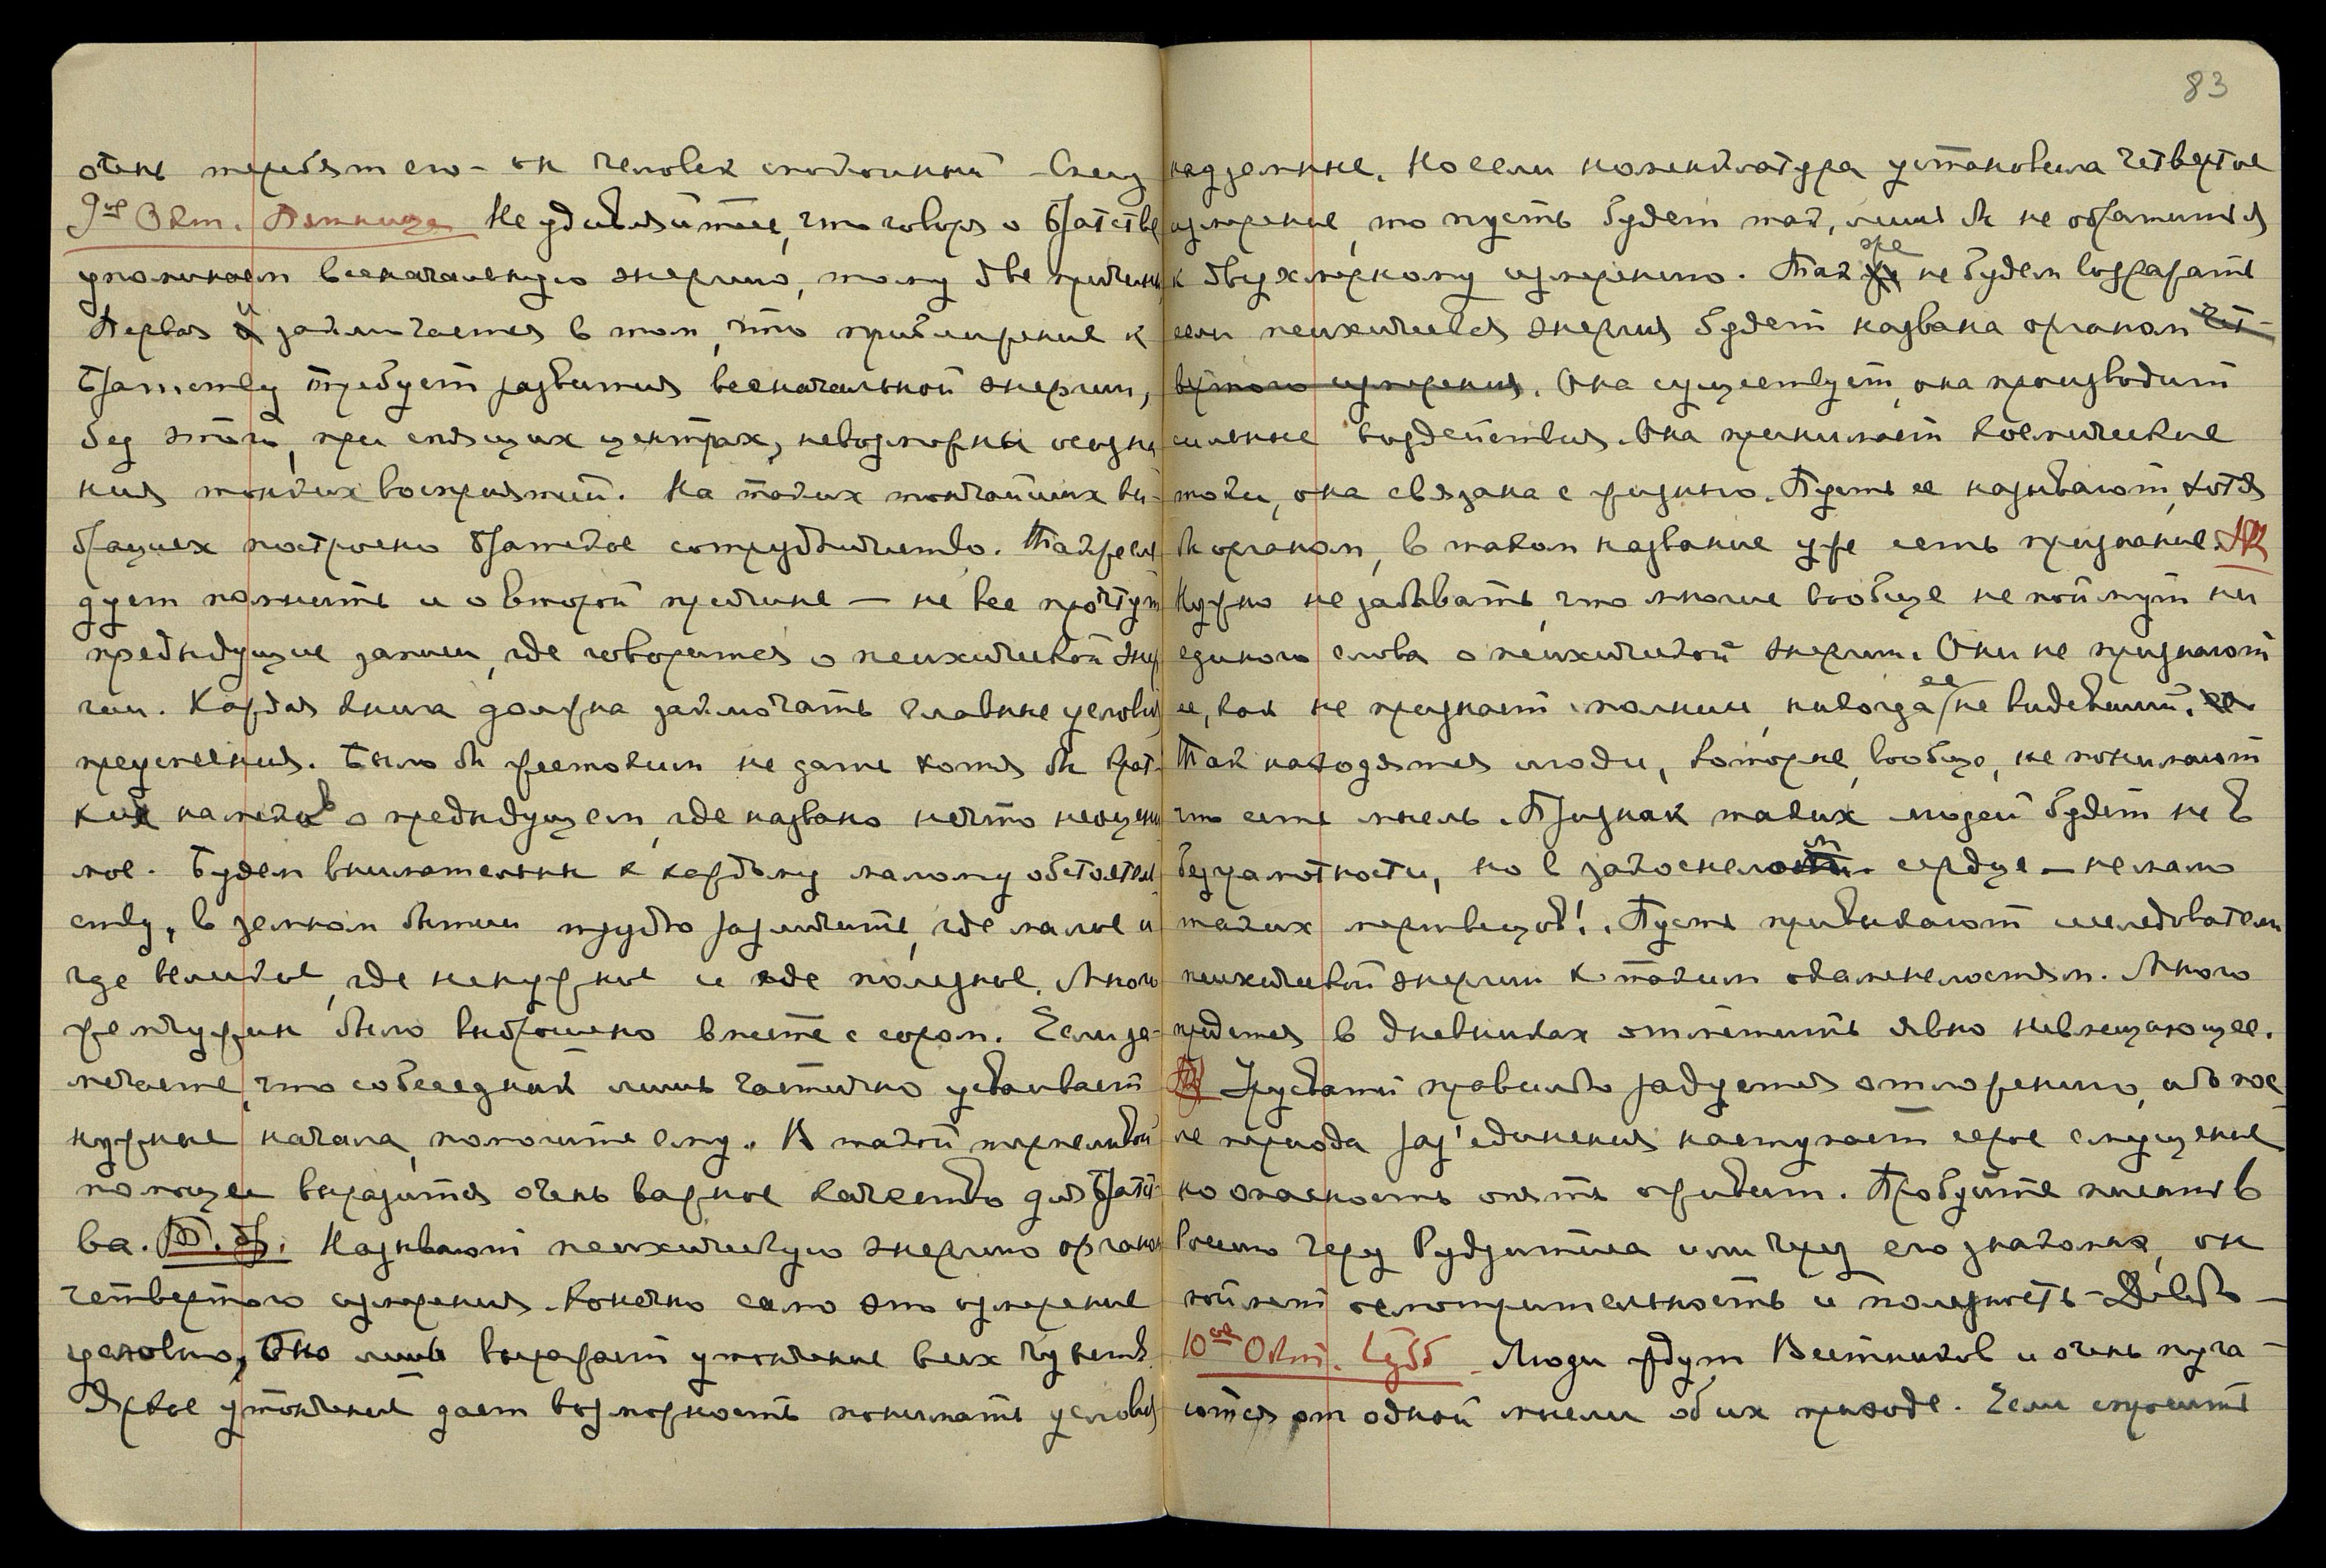 очень теребят его – он человек спокойный –
9ое Окт. Пятница Не удивляйтесь, что говоря о Братстве
упоминаем всеначальную энергию, тому две причины
Первая заключается в том, что приближение к
Братству требует развития всеначальной энергии,
без этого, при спящих центрах, невозможны осозна
ния тонких восприятий. На таких тончайших ви-
брациях построено Братское сотрудничество. Также сле
дует помнить и о второй причине — не все прочтут
предыдущие записи, где говорится о психической энер
гии. Каждая книга должна заключать главные условия
преуспеяния. Было бы жестоким не дать хотя бы крат-
ких намеков о предыдущем, где названо нечто неоцени
мое. Будем внимательны к каждому малому обстоятель-
ству, в земном бытии трудно различить, где малое и
где великое, где ненужное и где полезное. Много
жемчужин было выброшено вместе с сором. Если за-
мечаете, что собеседник лишь частично усваивает
нужные начала, помогите ему. В такой терпеливой
помощи выразится очень важное качество для Братст-
ва. Называют психическую энергию органом
четвертого измерения. Конечно само это измерение
условно, Оно лишь выражает утончение всех чувств.
Яркое утончение дает возможность понимать условия
83
надземные. Но если номенклатура установила четвертое
измерение, то пусть будет так, лишь бы не обратиться
к двухмерному измерению. Так же не будем возражать
если психическая энергия будет названа органом чет-
вертого измерения. Она существует, она производит
сильные воздействия. Она принимает космические
токи, она связана с жизнью. Пусть ее называют, хотя
бы органом, в таком название уже есть признание.
Нужно не забывать, что многие вообще не поймут ни
единого слова о психической энергии. Они не признают
ее, как не признает молнии, никогда ее не видевший.
Так находятся люди, которые, вообще, не понимают
что есть мысль. Признак таких людей будет не в
безграмотности, но в закоснелом сердце — не мало
таких мертвецов! Пусть привыкают исследователи
психической энергии к таким окаменелостям. Много
придется в дневниках отметить явно невмещающее.
правильно радуется отложению, ибо пос
ле периода раз'единения наступает серое смущение
но опасность опять оживит. Пробуйте писать в
через Рудзитиса или через его знакомых, он
поймет осмотрительность и полезность – Довольно —
10ое Окт. Субб Люди ждут Вестников и очень пуга –
ются от одной мысли об их приходе. Если спросить